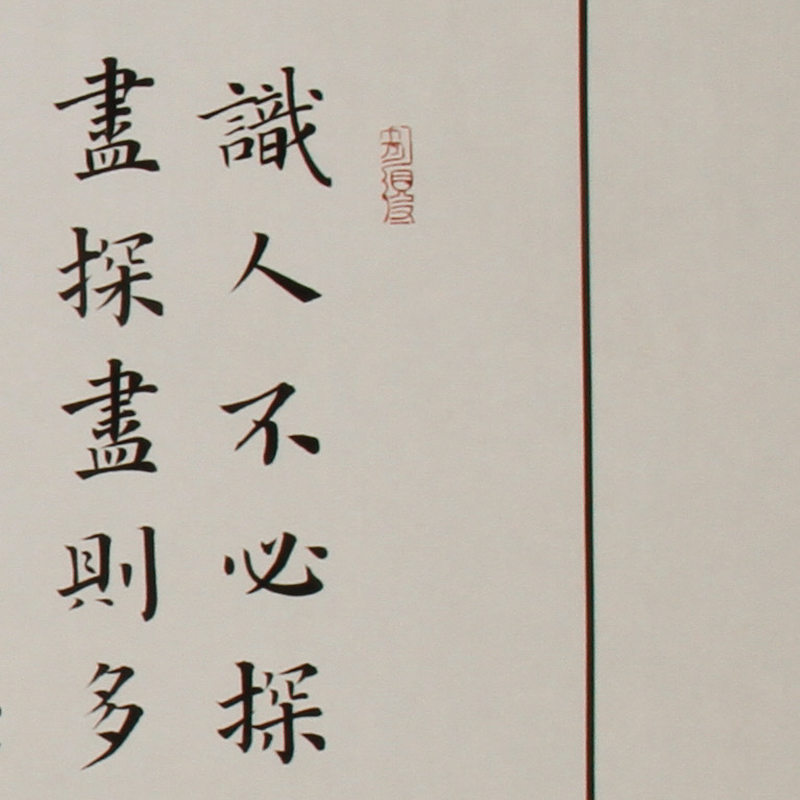 識人不必探
盡探盡則多